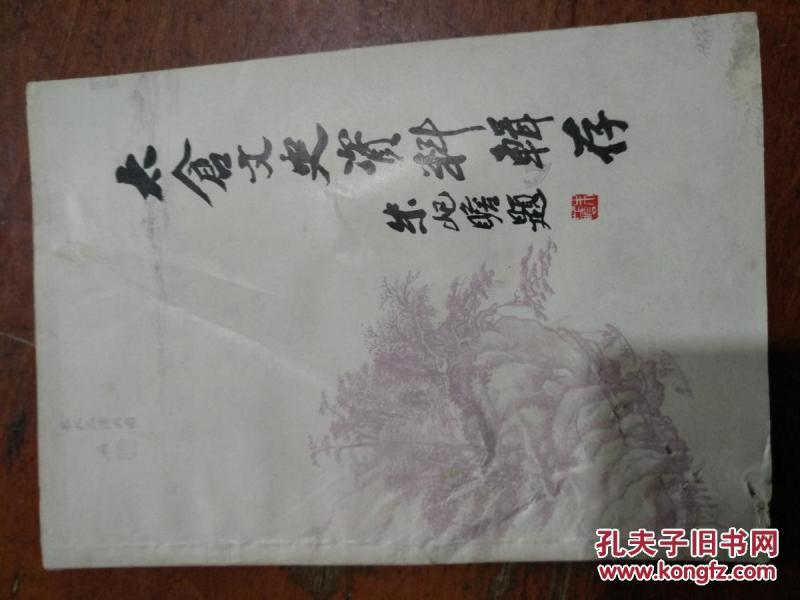 太倉文史資料輯存
朱屺瞻題
孔夫子旧书网
www.kongfz.com